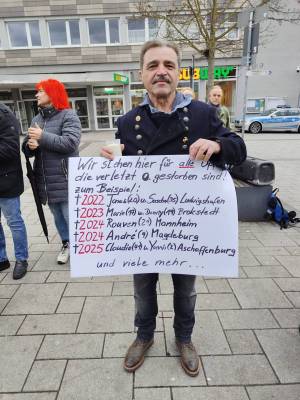 SUBWAY
Wir stehen hier für alle
die verletzt o. gestorben sind!
zum Beispiel:
†2022 Jonas(20) u. Sascha(35) Ludwigshafen
†2023 Marie(17) u. Danny(19) Brokstedt
†2024 Rouven(29) Mannheim
†2024 André(9) Magdeburg
†2025 u. Yannis(2) Aschaffenburg
und viele mehr...